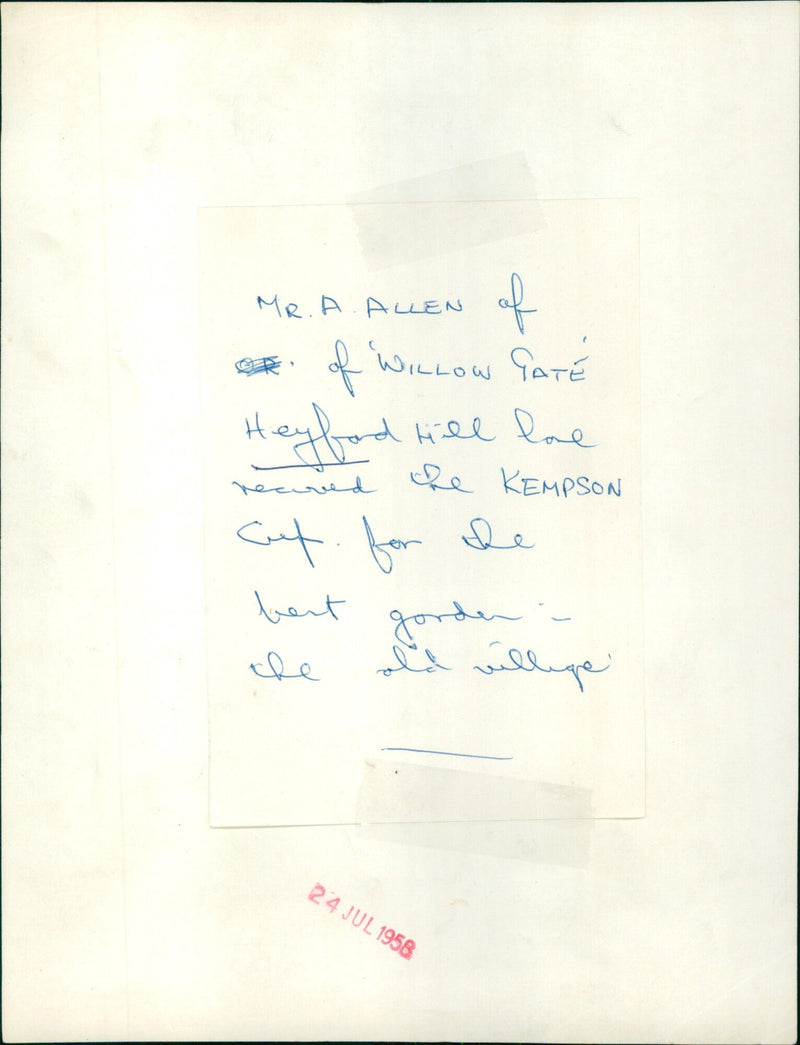 MR. A. ALLEN of
of 'WILLOW GATE'
Heyford Hill Lane
received the KEMPSON
Cup. for the
best garden in
the old village
24 JUL 1958